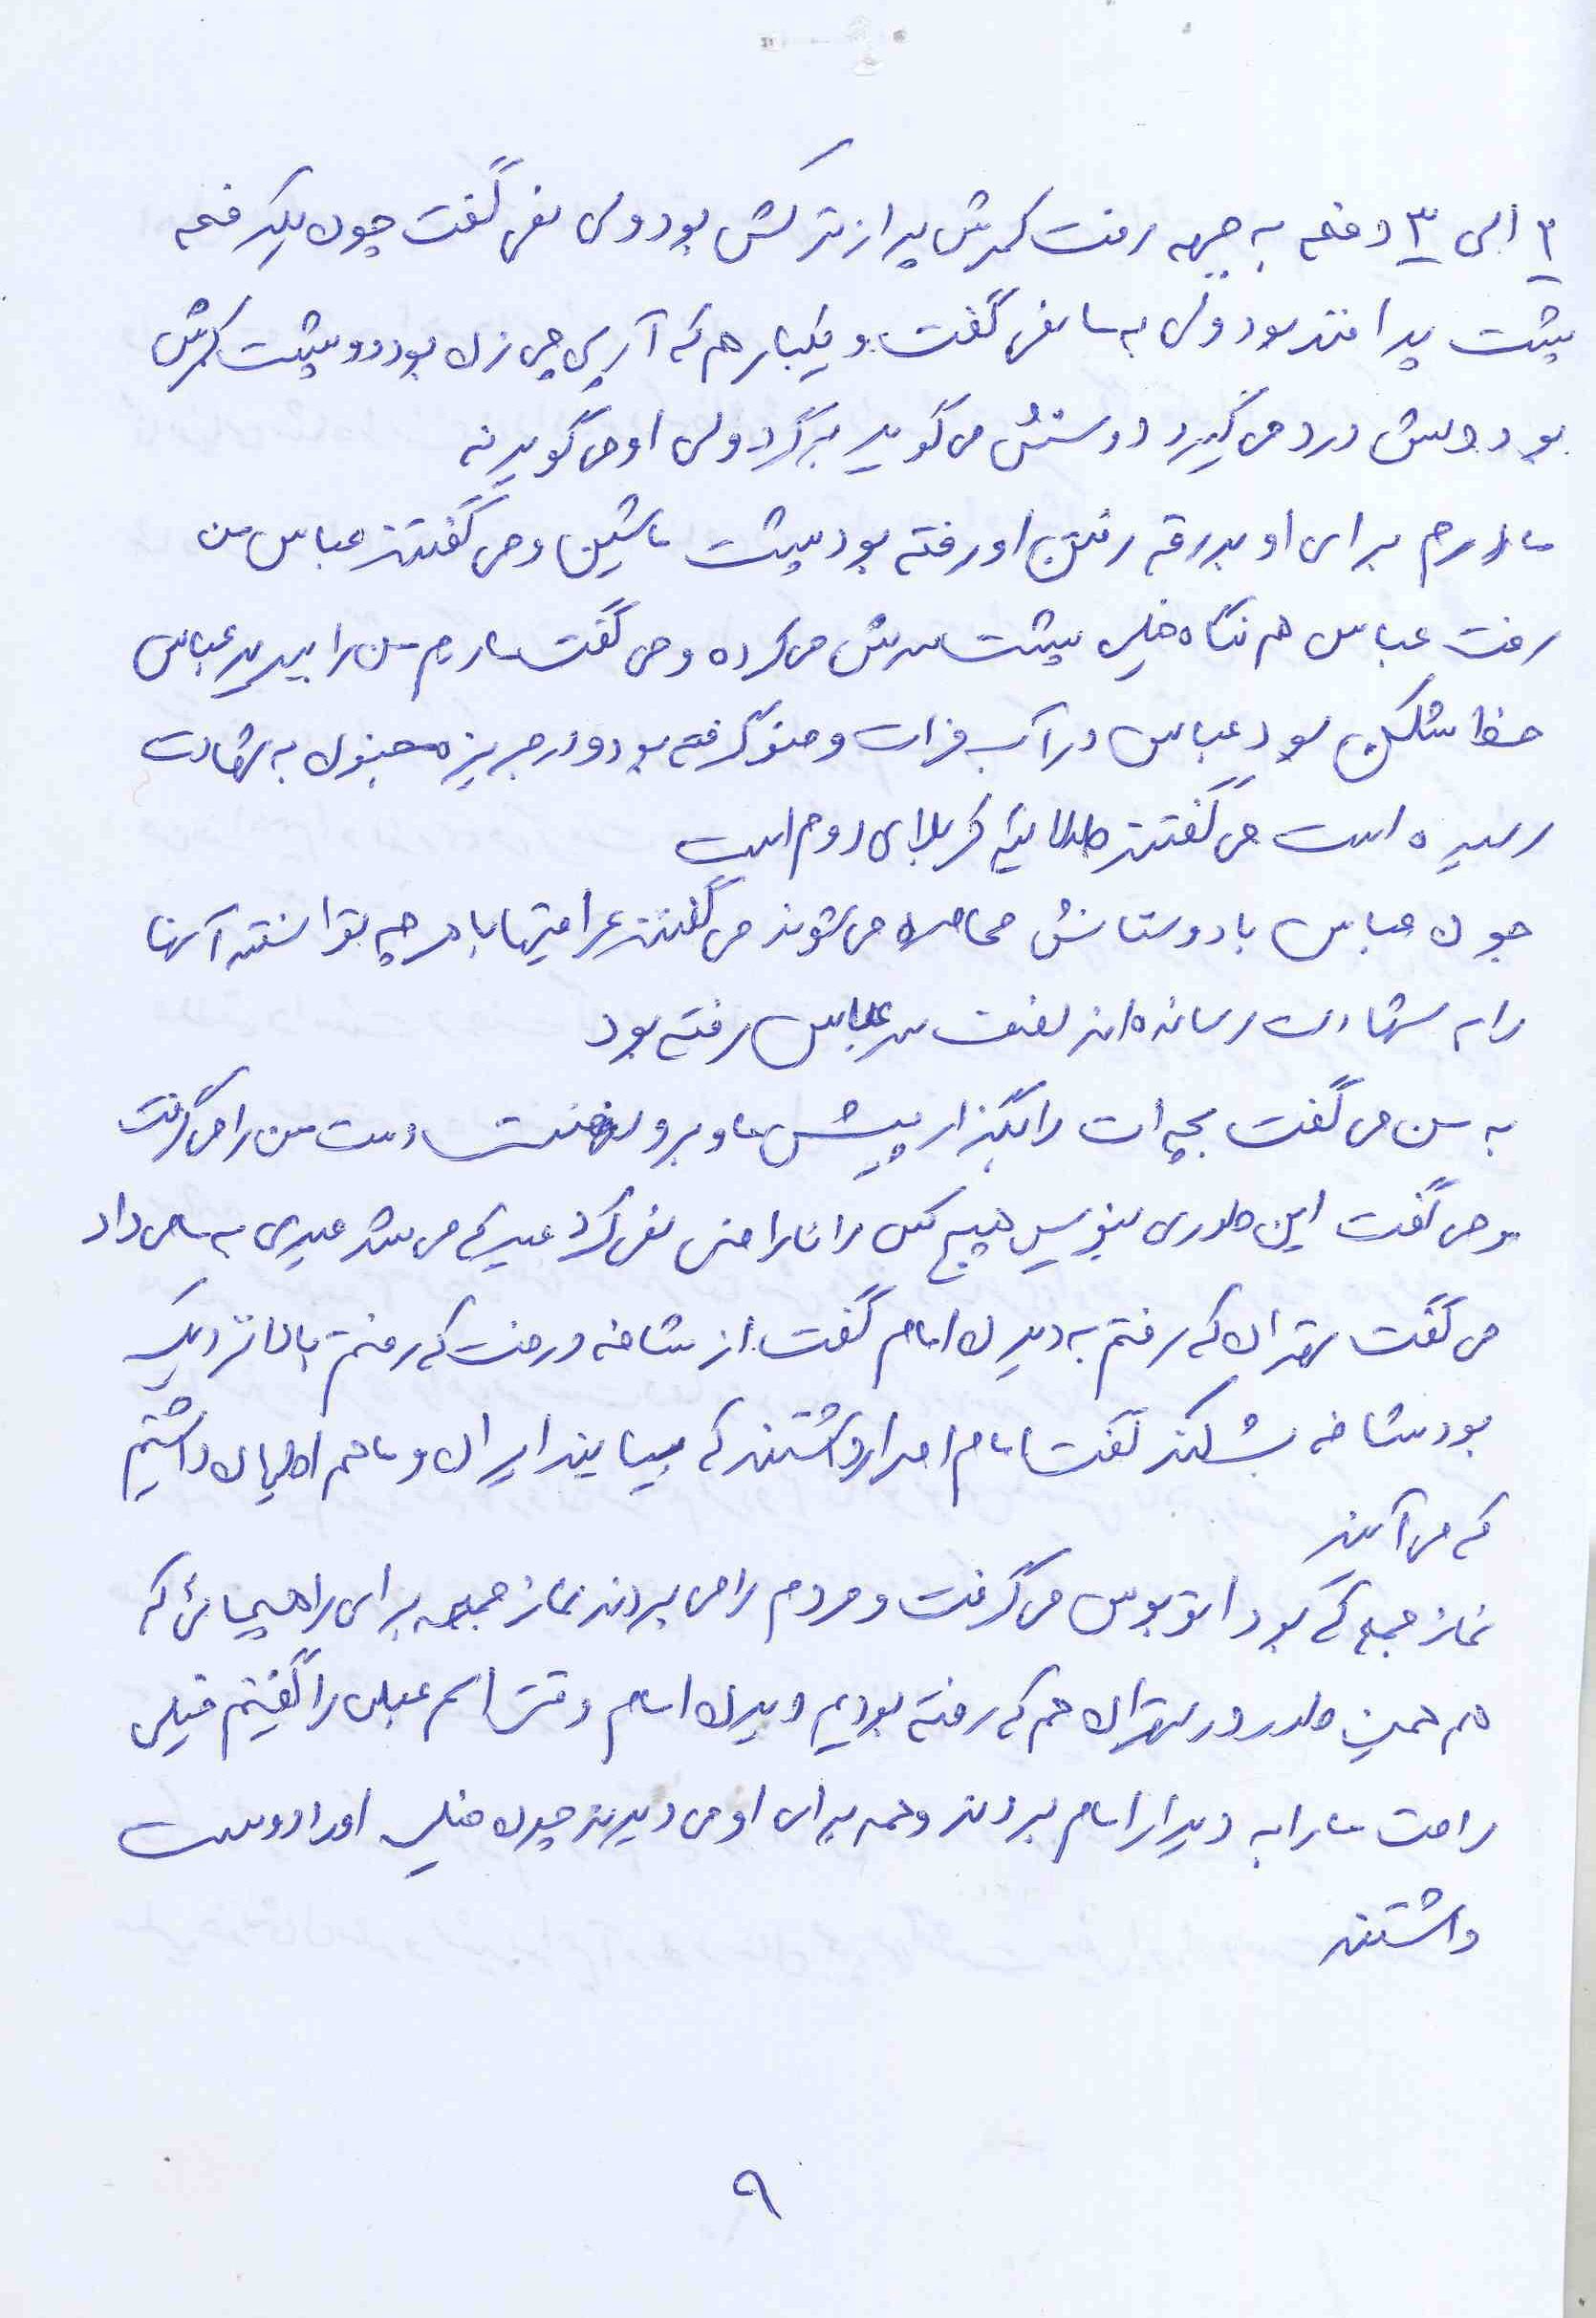 ۲ الی ۳ دفعه به جبهه رفت کمرش پر از ترکش بود ولی نمی گفت چون یکدفعه
پشت پدافند بود ولی به ما نمی گفت و یکبار هم که آرپی چی زن بود و پشت کمرش
بود دستش درد می گیرد دوستش می گوید برگرد ولی او می گوید نه
مادرم برای او بدرقه رفتن او رفته بود پشت ماشین و می گفتند عباس من
رفت عباس هم نگاه خیلی پشت سرش می کرده و می گفت مادرم من را ببرید عباس
خط شکن بود عباس در آب فرات وضو گرفته بود و در جزیره مجنون به شهادت
رسیده است می گفتند طلائیه کربلای دوم است
چون عباس با دوستانش محاصره می شوند می گفتند عراقیها با هر چه توانسته آنها
را به شهادت رسانده اند نصف سر عباس رفته بود
به من می گفت بچه ات را بگذار پیش ما و برو دست من را می گرفت
و می گفت این طوری بنویس هیچ کس را ناراضی نمی کرد عید که می شد عیدی به ما می داد
می گفت تهران که رفتم به دیدن امام گفت از شاخه درخت که رفتم بالا نزدیک
بود شاخه بشکند گفت امام اصرار داشتند که بیایند ایران و ما هم اطمینان داشتیم
که می آیند
نماز جمعه که بود اتوبوس می گرفت و مردم را می بردند نماز جمعه برای راهپیمائی که
هم همین طور در تهران هم که رفته بودیم دیدن امام وقتی اسم عباس را گفتیم خیلی
راحت ما را به دیدار امام بردند و همه برای او می دیدند چون خیلی او را دوست
داشتند
۹